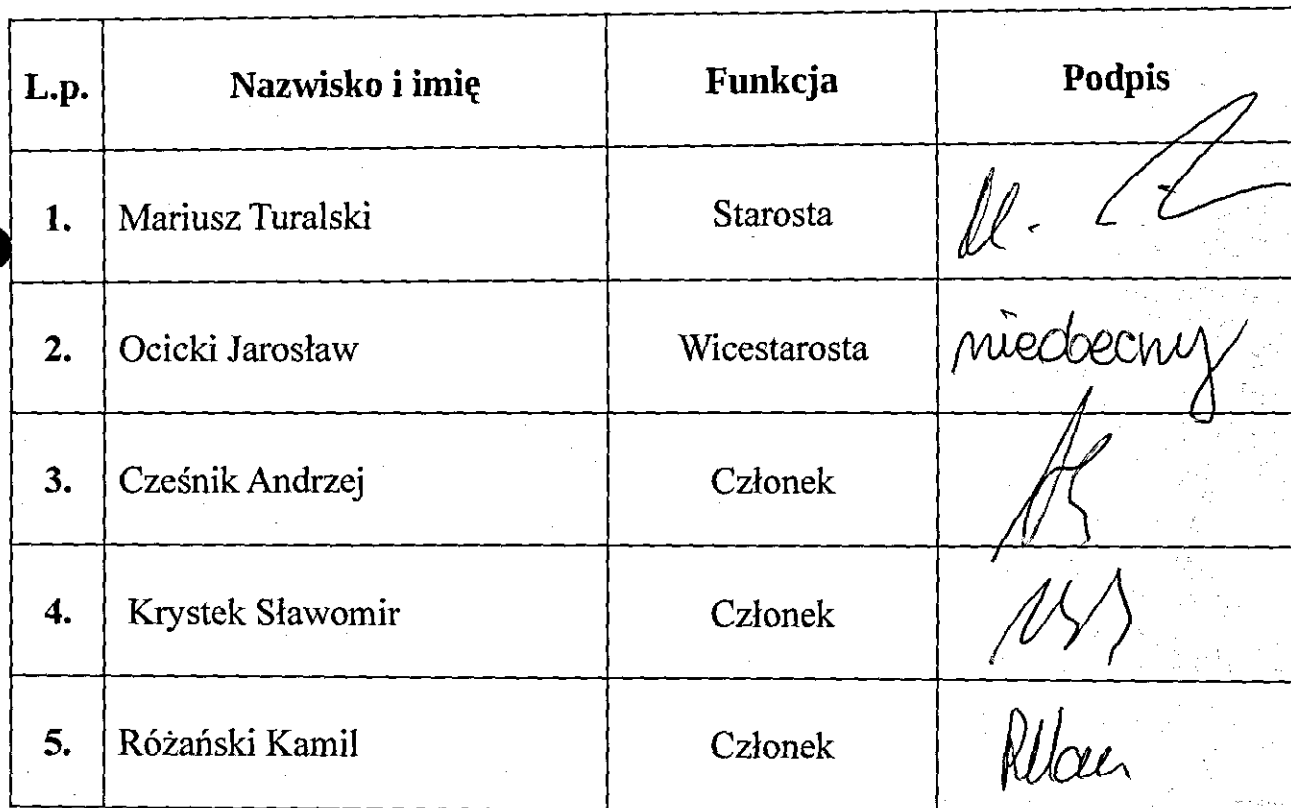 L.p. Nazwisko i imię Funkcja Podpis
1. Mariusz Turalski Starosta
2. Ocicki Jarosław Wicestarosta nieobecny
3. Cześnik Andrzej Członek
4. Krystek Sławomir Członek
5. Różański Kamil Członek